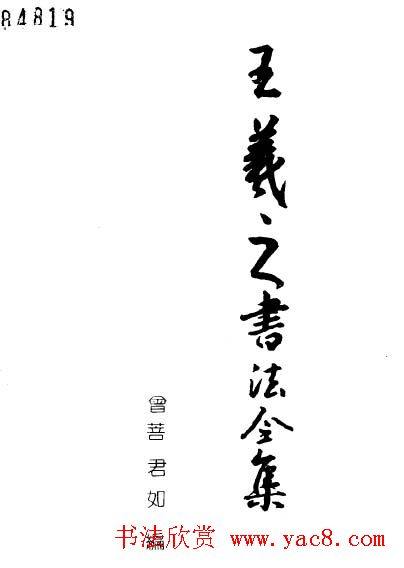 84819
王羲之書法全集
曾菩 君如 編
书法欣赏 www.yac8.com